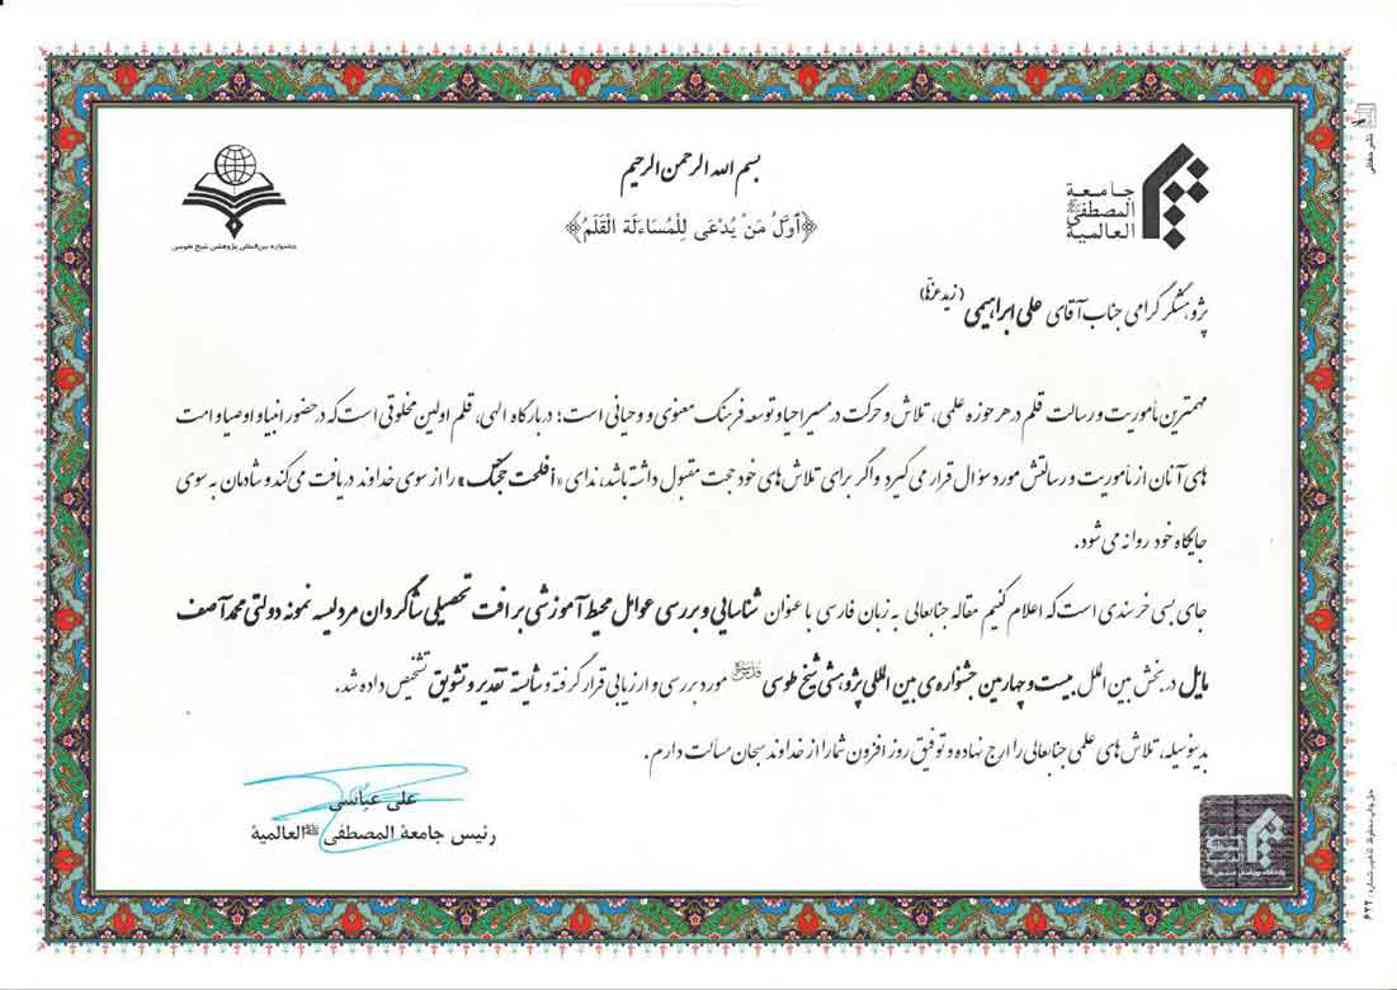 بسم الله الرحمن الرحیم
﴿أَوَّلُ مَنْ يُدْعَى لِلْمُسَاءَلَة الْقَلَمُ﴾
جامعة
المصطفی ﷺ
العالمية
جشنواره بین‌المللی پژوهشی شیخ طوسی
پژوهشگر گرامی جناب آقای علی ابراهیمی (زید عزّه)
مهمترین مأموریت و رسالت قلم در هر حوزه علمی، تلاش و حرکت در مسیر احیا و توسعه فرهنگ معنوی و وحیانی است؛ در بارگاه الهی، قلم اولین مخلوقی است که در حضور انبیا و اوصیا و امت
های آنان از مأموریت و رسالتش مورد سؤال قرار می گیرد و اگر برای تلاش های خود حجت مقبول داشته باشد، ندای «أفلحت حجتک» را از سوی خداوند دریافت می کند و شادمان به سوی
جایگاه خود روانه می شود.
جای بسی خرسندی است که اعلام کنیم مقاله جنابعالی به زبان فارسی با عنوان شناسایی و بررسی عوامل محیط آموزشی بر افت تحصیلی شاگردان مرد لیسه نمونه دولتی محمد آصف
مایل در بخش بین الملل بیست و چهارمین جشنواره‌ی بین المللی پژوهشی شیخ طوسی مورد بررسی و ارزیابی قرار گرفته و شایسته تقدیر و تشویق تشخیص داده شد.
بدینوسیله، تلاش های علمی جنابعالی را ارج نهاده و توفیق روز افزون شما را از خداوند سبحان مسألت دارم.
علی عباسی
رئیس جامعة المصطفی ﷺ العالمیة